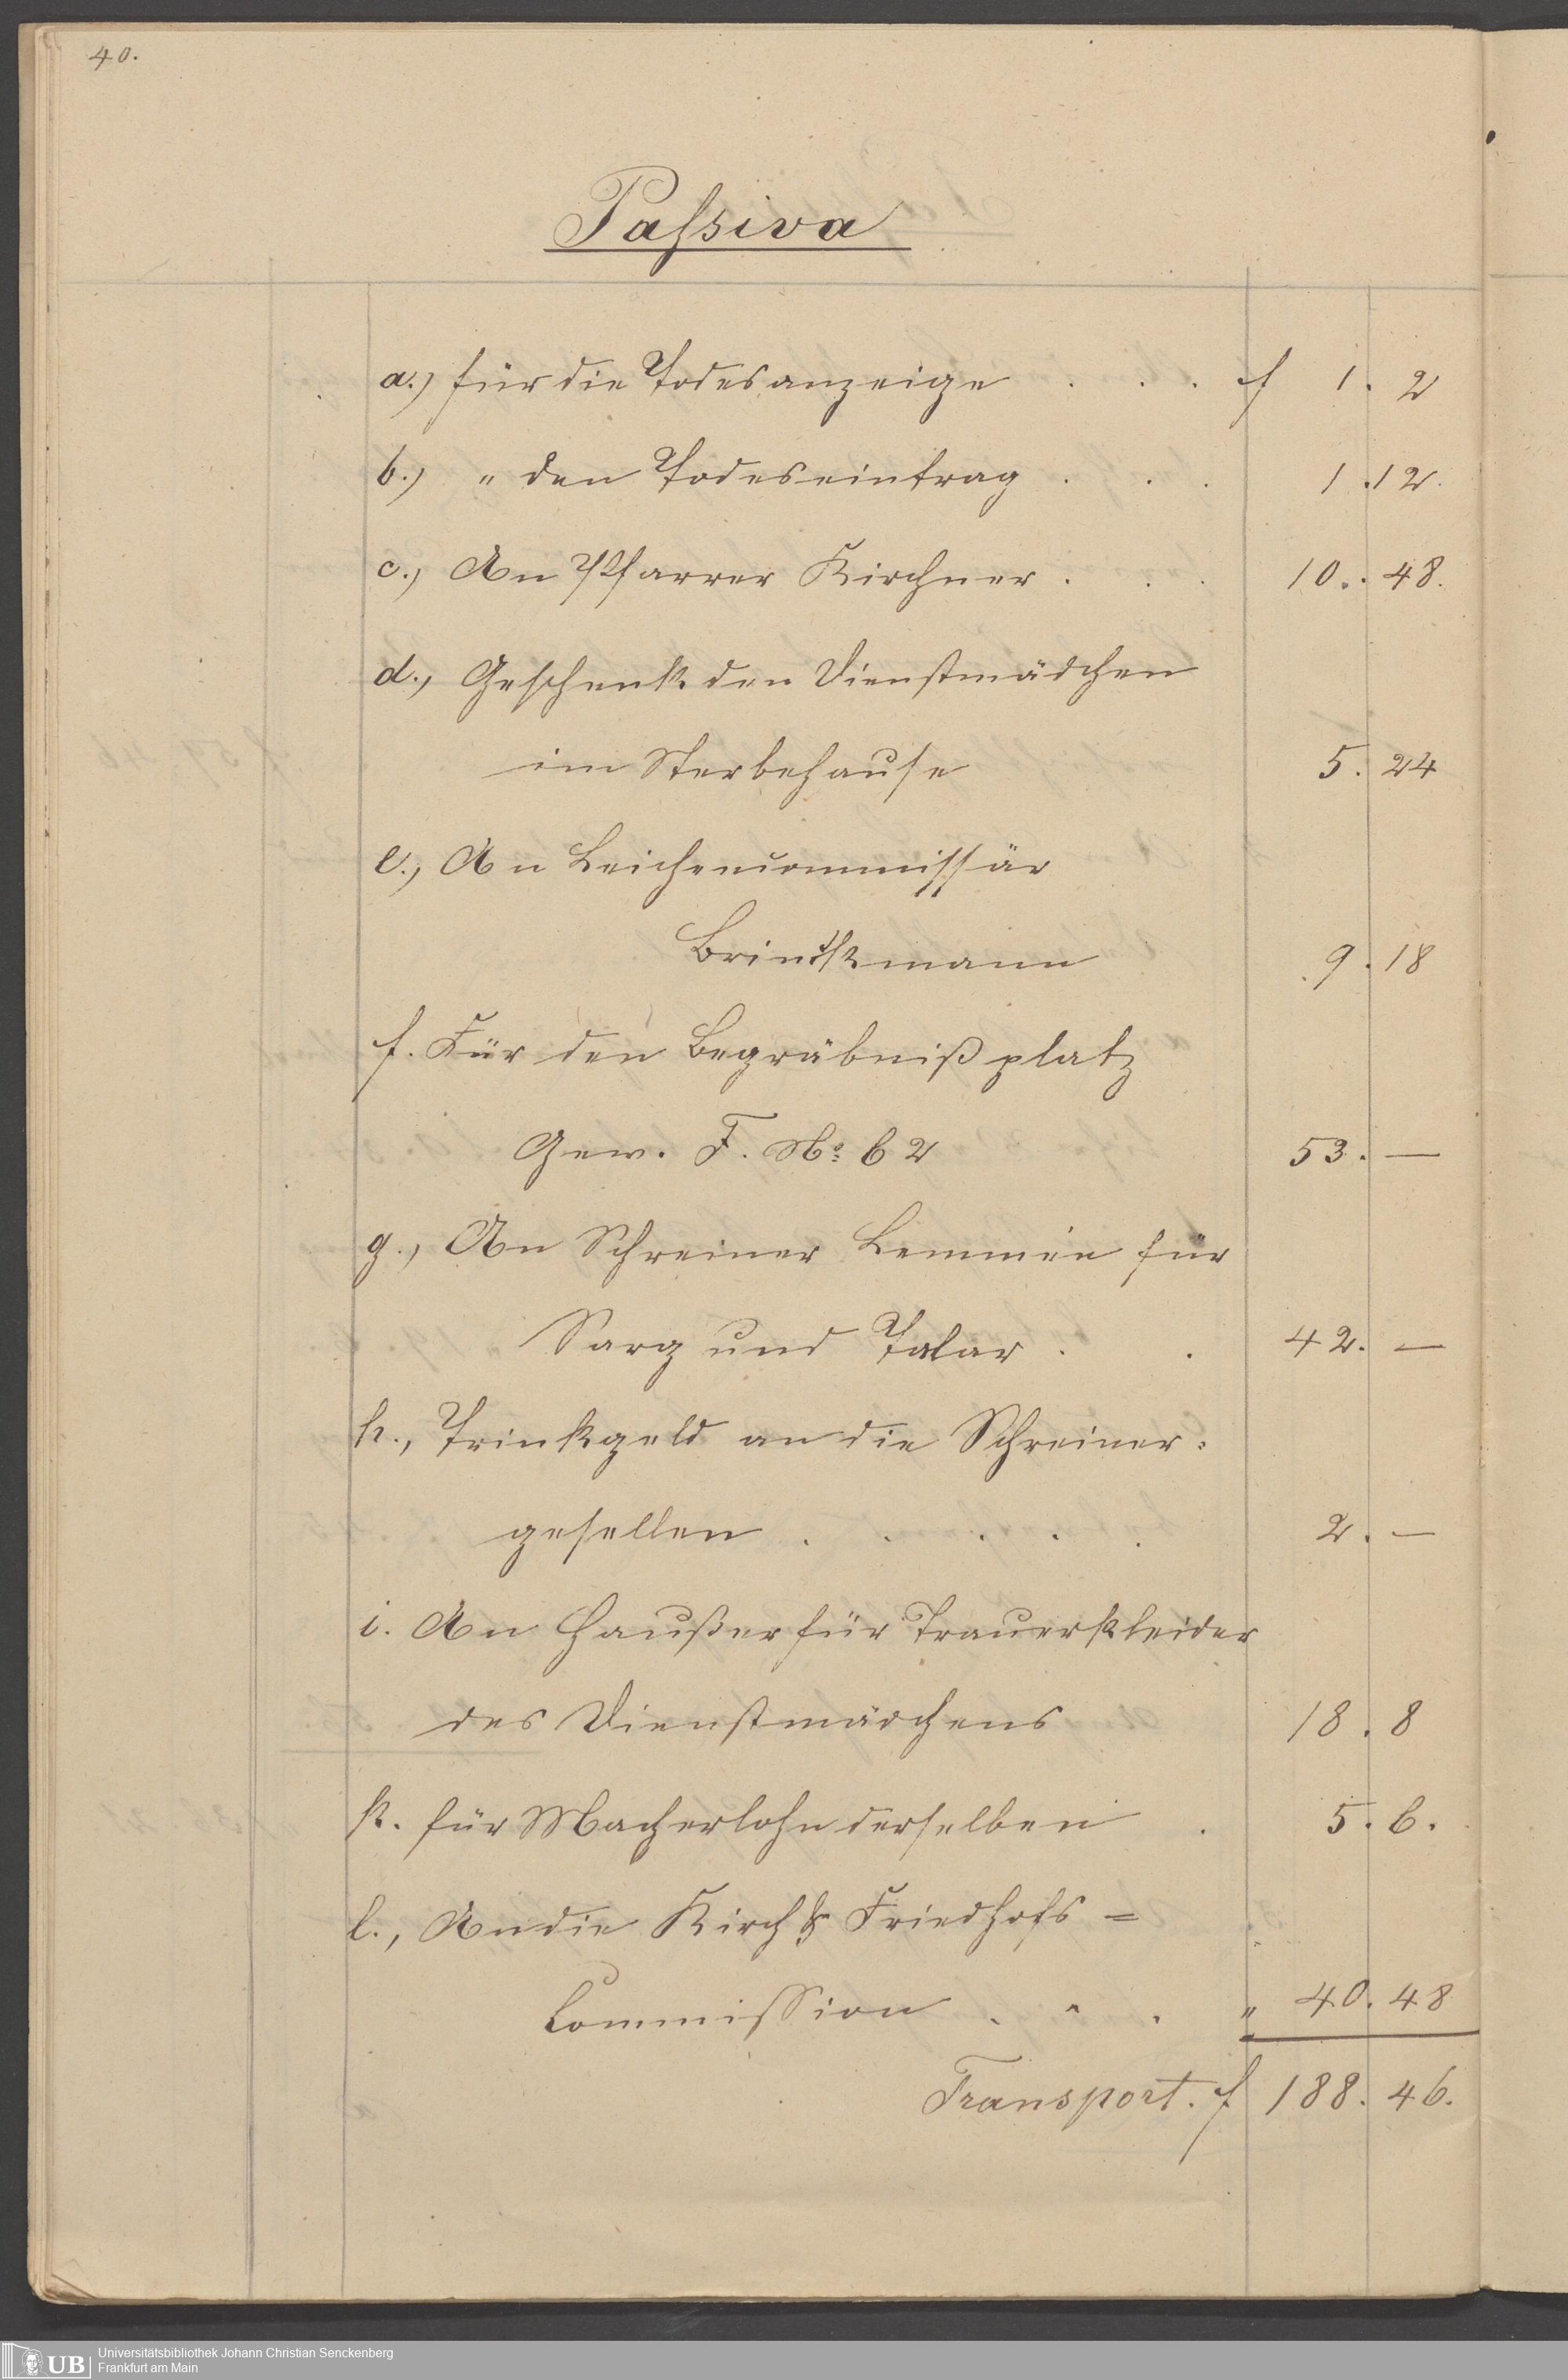 40.
Passiva
a.) für die Todesanzeige . . . f 1. 2
b.) " den Todeseintrag . . . 1. 12.
c.) An Pfarrer Kirchner . . . 10. 48.
d., Geschenk den Dienstmädchen
im Sterbehause 5. 24
e., An Leichencommissär
Brinckmann 9. 18
f. Für den Begräbnißplatz
Gew. F. No: 62 53. —
g., An Schreiner Lemmé für
Sarg und Talar . . 42. —
h., Trinkgeld an die Schreiner-
gesellen . . . . . 2. —
i. An Haußer für Trauerkleider
des Dienstmädchens 18. 8
k. für Macherlohn derselben . 5. 6.
l., An die Kirch & Friedhofs =
Commission . . . " 40. 48
Transport. f 188. 46.
UB Universitätsbibliothek Johann Christian Senckenberg
Frankfurt am Main